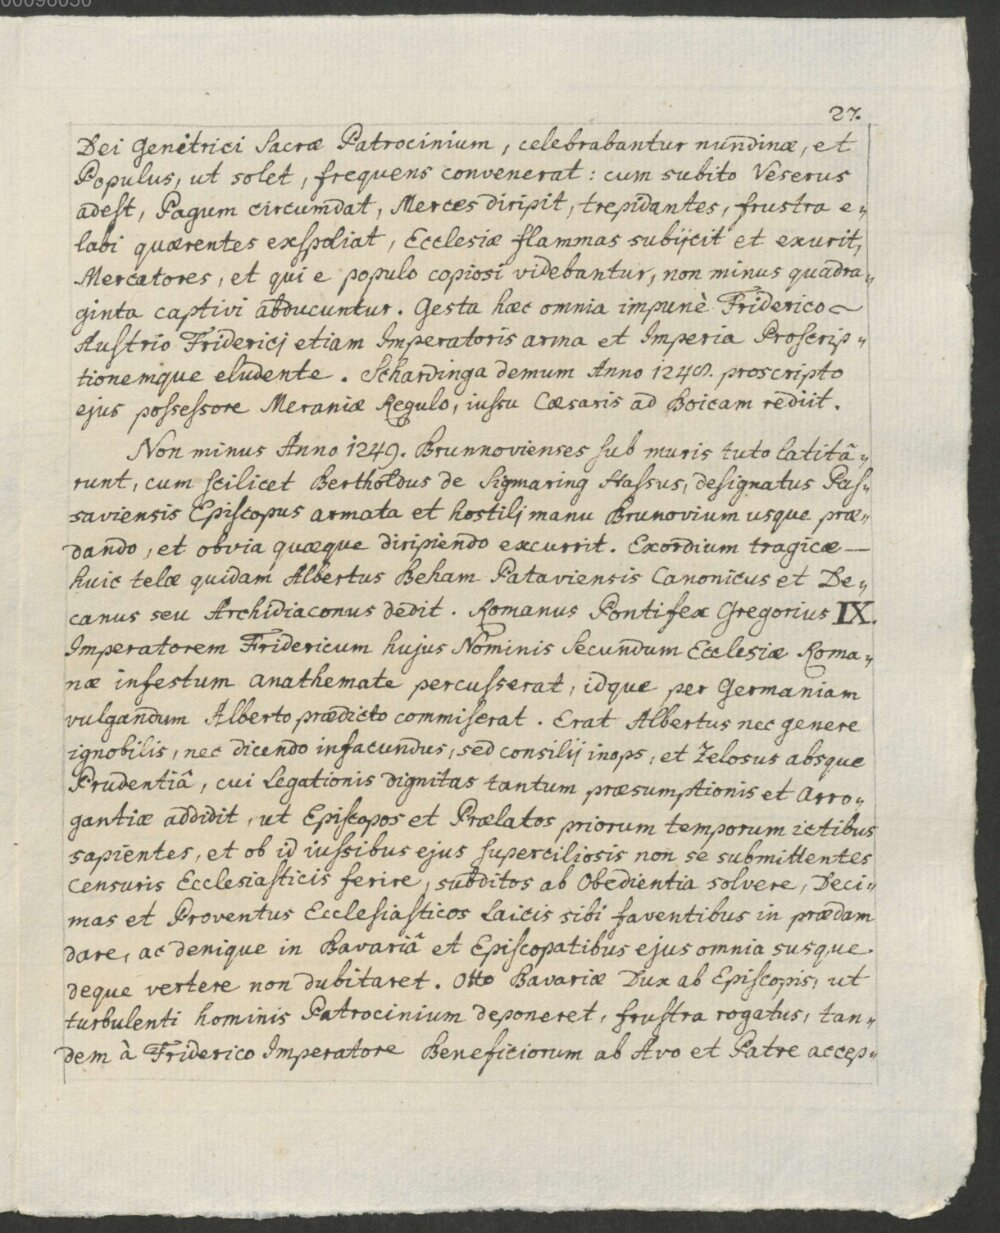 00096050
27.
Dei Genitrici Sacræ Patrocinium, celebrabantur nundinæ, et
Populus, ut solet, frequens convenerat: cum subito Veserus
adest, Pagum circumdat, Merces diripit, trepidantes, frustra e„
labi quærentes exspoliat, Ecclesiæ flammas subijcit et exurit,
Mercatores, et qui e populo copiosi videbantur, non minus quadra„
ginta captivi abducuntur. Gesta hæc omnia impunè Friderico
Austrio Friderici etiam Imperatoris arma et Imperia Proscrip„
tionemque eludente. Schardinga demum Anno 1248. proscripto
ejus possessore Meraniæ Regulo, iussu Cæsaris ad Boicam rediit.
Non minus Anno 1249. Brunnovienses sub muris tuto latitâ„
runt, cum scilicet Bertholdus de Sigmaring Hassus, designatus Pas„
saviensis Episcopus armata et hostili manu Brunovium usque præ„
dando, et obvia quæque diripiendo excurrit. Exordium tragicæ —
huic telæ quidam Albertus Beham Pataviensis Canonicus et De„
canus seu Archidiaconus dedit. Romanus Pontifex Gregorius IX.
Imperatorem Fridericum hujus Nominis Secundum Ecclesiæ Roma„
næ infestum anathemate percusserat, idque per Germaniam
vulgandum Alberto prædicto commiserat. Erat Albertus nec genere
ignobilis, nec dicendo infacundus, sed consilij inops, et Zelosus absque
Prudentiâ, cui Legationis dignitas tantum præsumptionis et Arro„
gantiæ addidit, ut Episcopos et Prælatos priorum temporum ictibus
sapientes, et ob id iussibus ejus superciliosis non se submittentes
Censuris Ecclesiasticis ferire, subditos ab Obedientia solvere, Deci„
mas et Proventus Ecclesiasticos Laicis sibi faventibus in prædam
dare, ac denique in Bavariâ et Episcopatibus ejus omnia susque
deque vertere non dubitaret. Otto Bavariæ Dux ab Episcopis, ut
turbulenti hominis Patrocinium deponeret, frustra rogatus, tan„
dem à Friderico Imperatore Beneficiorum ab Avo et Patre accep„